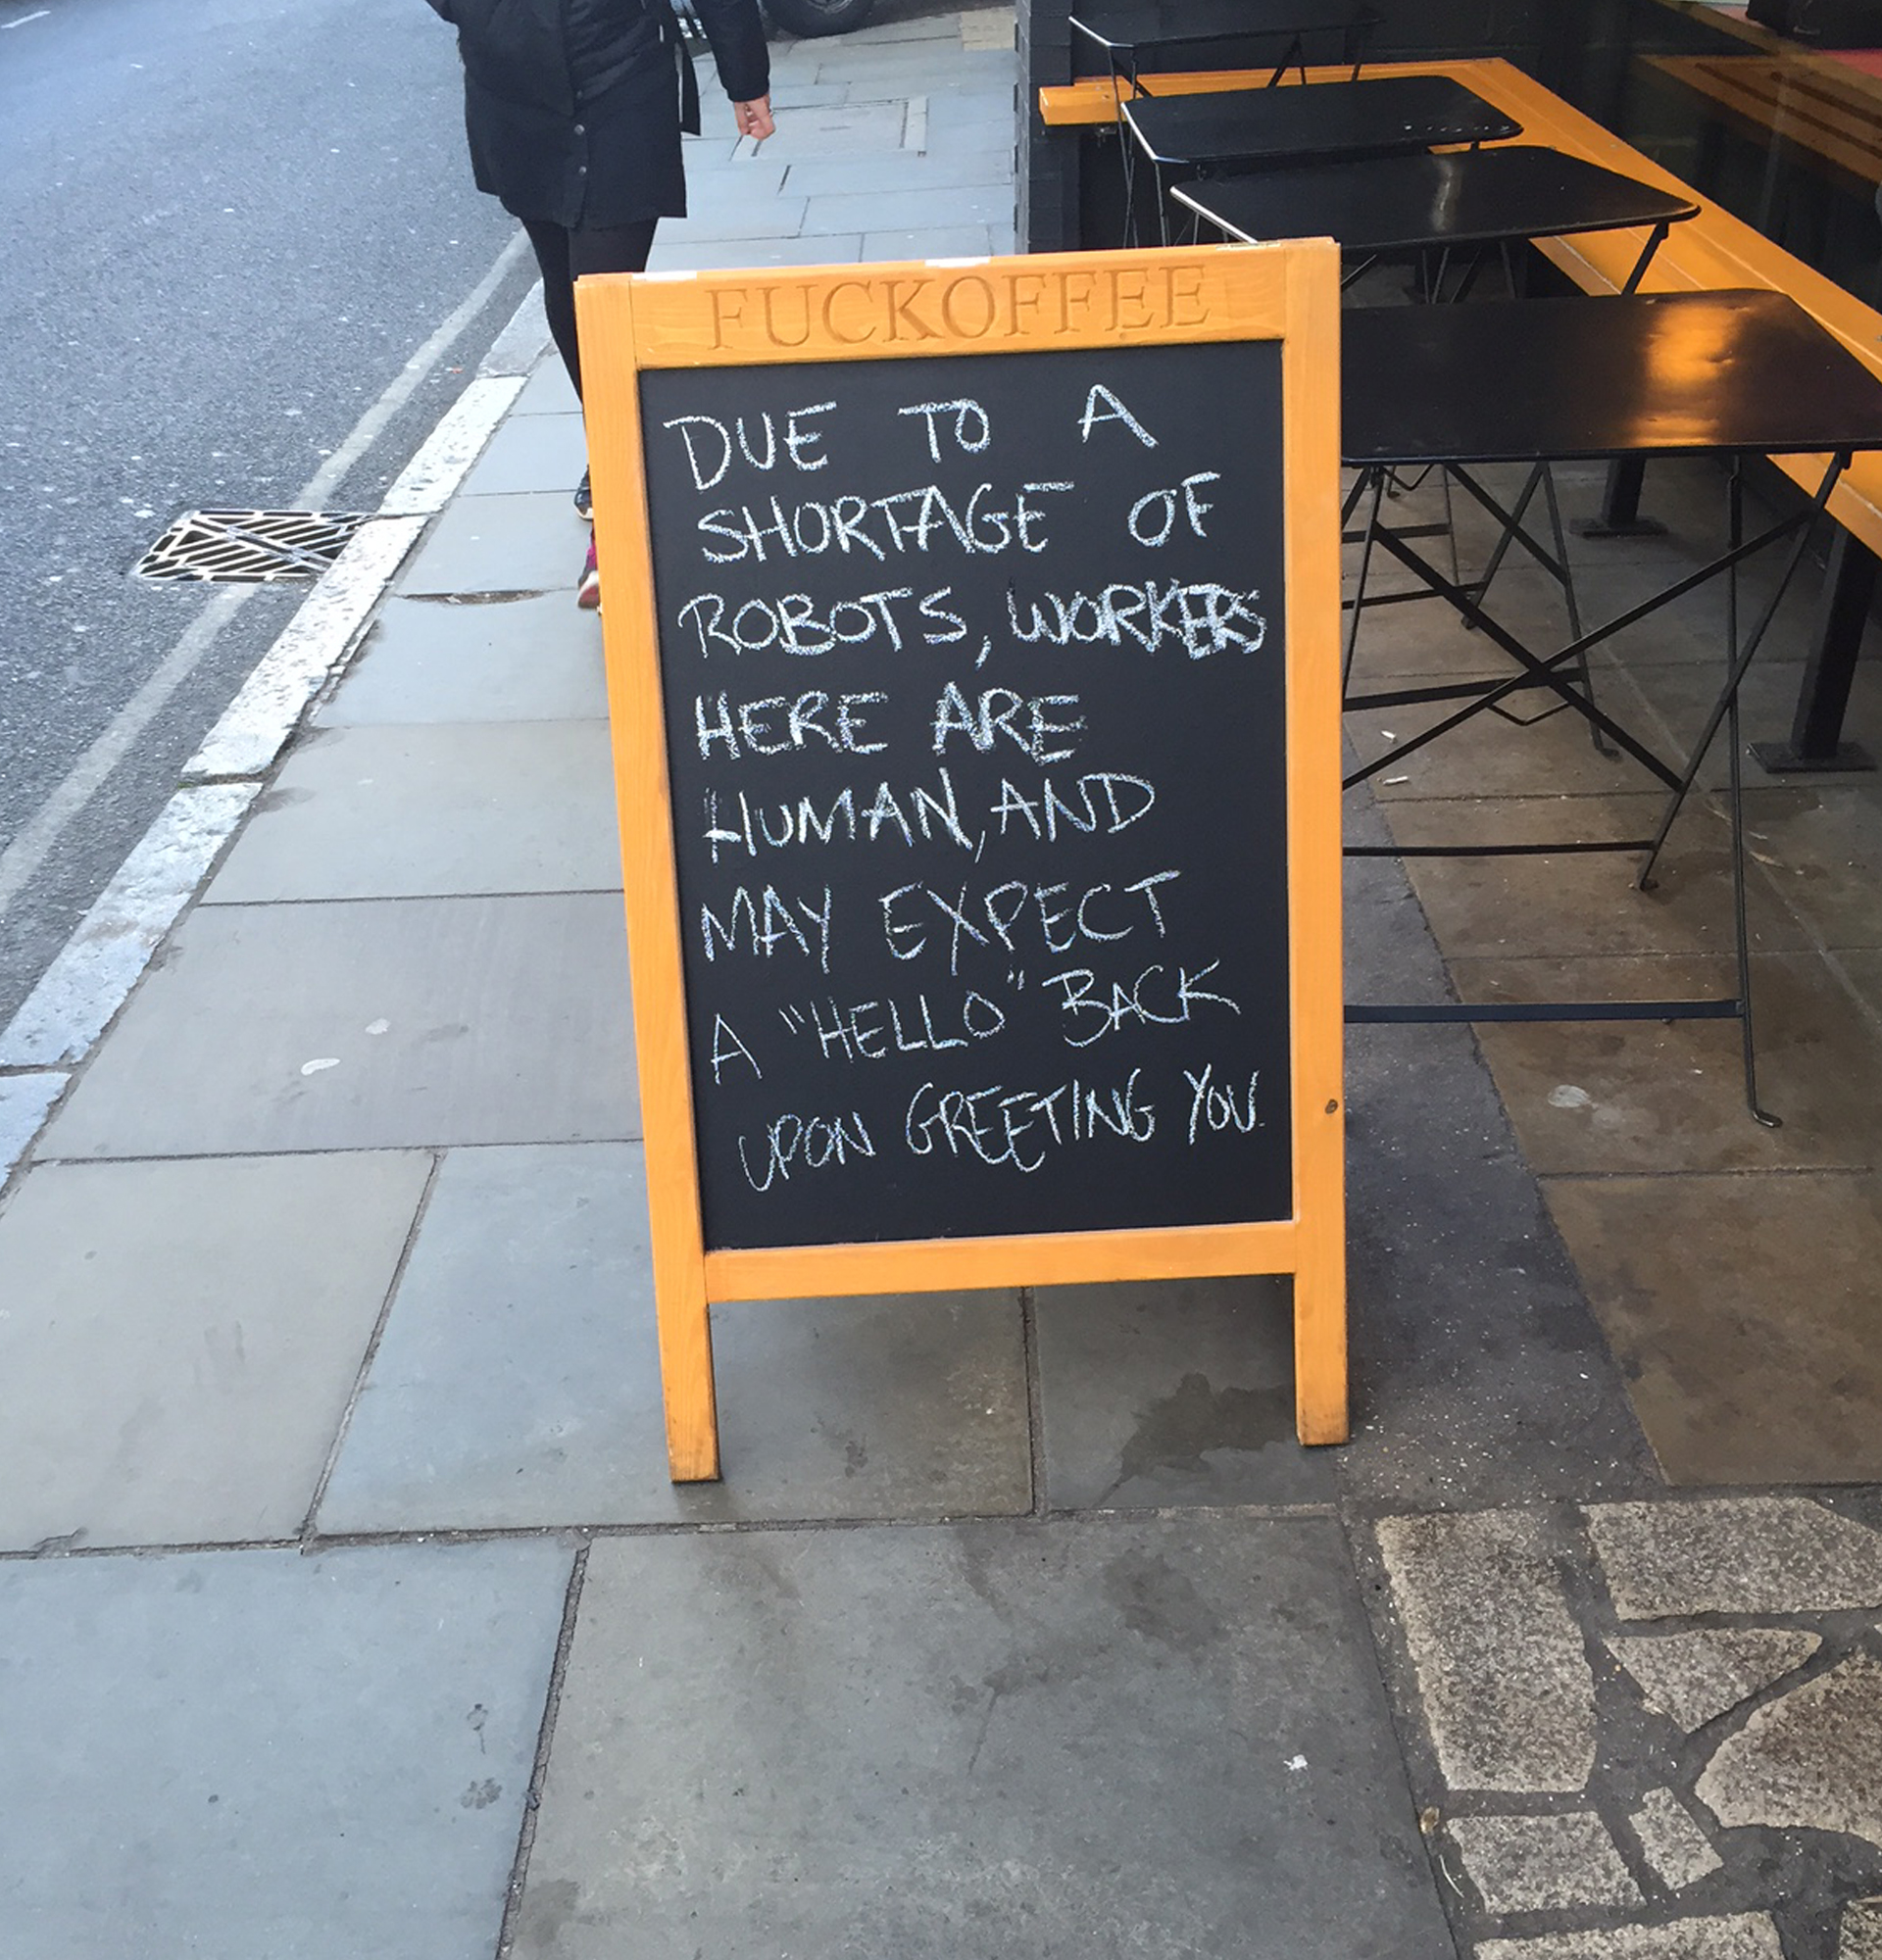 FUCKOFFEE
DUE TO A
SHORTAGE OF
ROBOTS, WORKERS
HERE ARE
HUMAN, AND
MAY EXPECT
A "HELLO" BACK
UPON GREETING YOU.